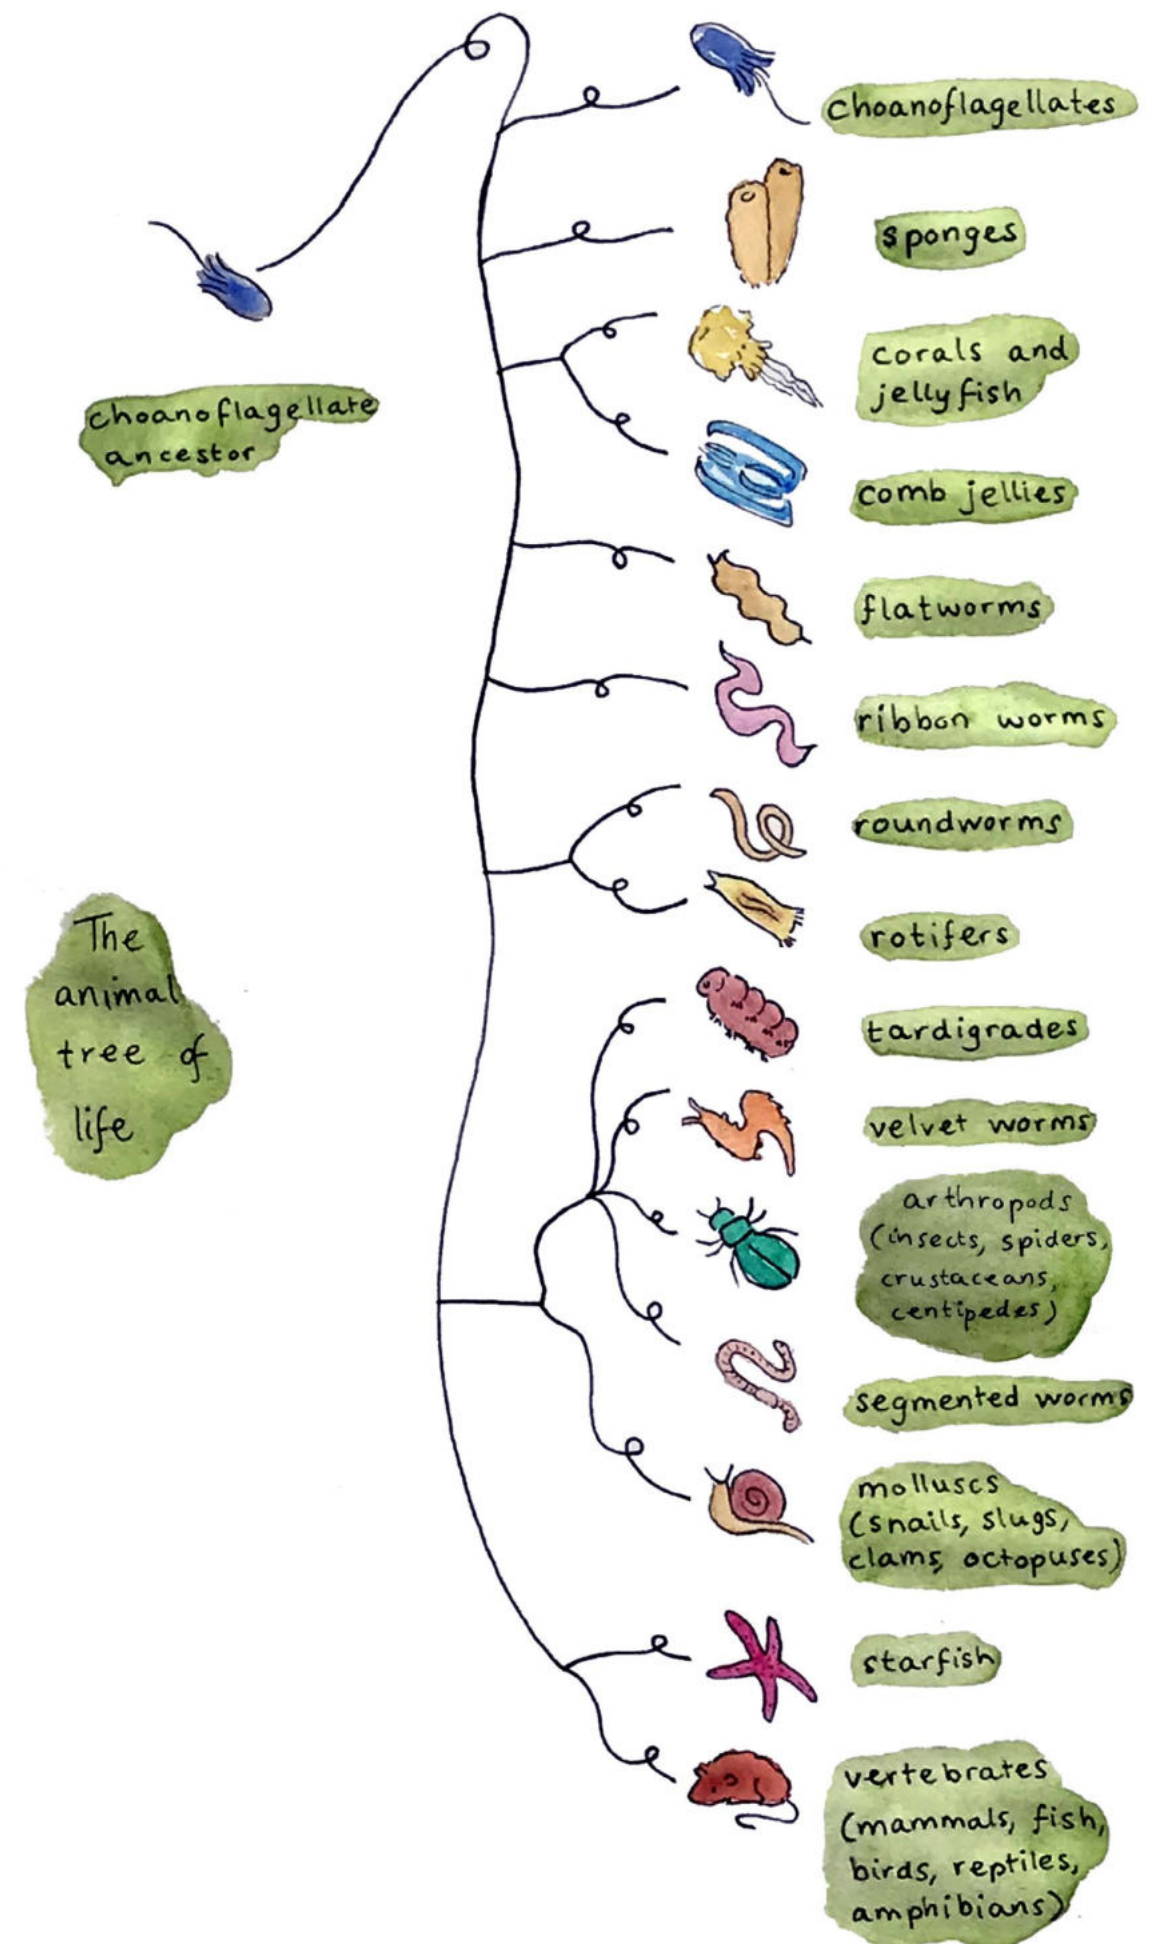 choanoflagellates
sponges
corals and
jellyfish
choanoflagellate
ancestor
comb jellies
flatworms
ribbon worms
roundworms
The
animal
tree of
life
rotifers
tardigrades
velvet worms
arthropods
(insects, spiders,
crustaceans,
centipedes)
segmented worms
molluscs
(snails, slugs,
clams, octopuses)
starfish
vertebrates
(mammals, fish,
birds, reptiles,
amphibians)